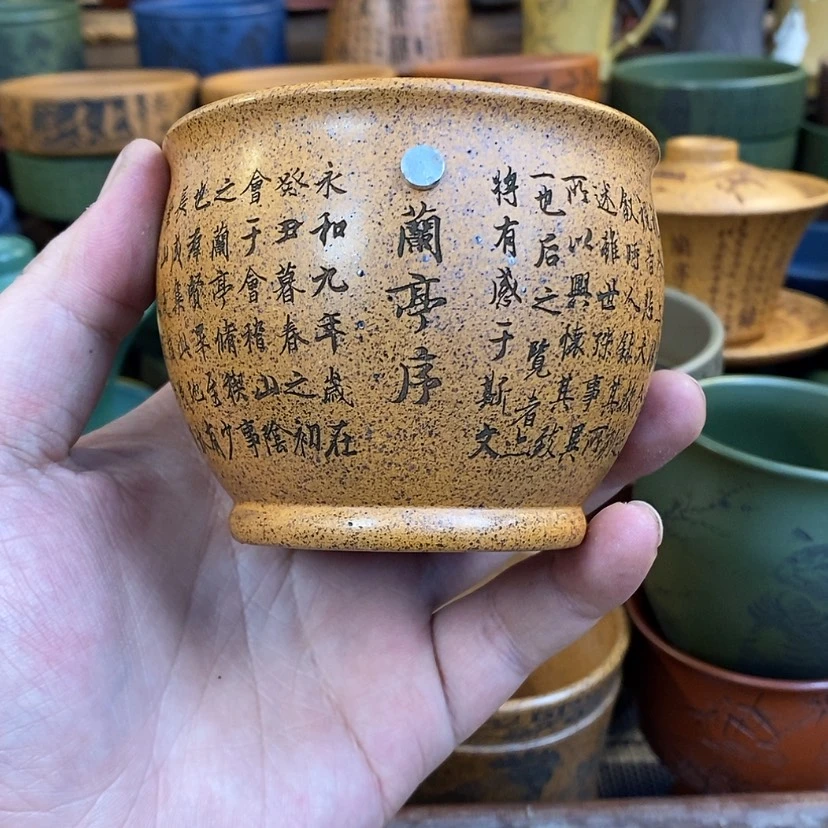 蘭亭序
永和九年歲在
癸丑暮春之初
會于會稽山陰
之蘭亭脩禊事
也群賢畢至少
咸集此地有
叙時人錄其所
述雖世殊事異
所以興懷其致
一也后之覽者
將有感于斯文